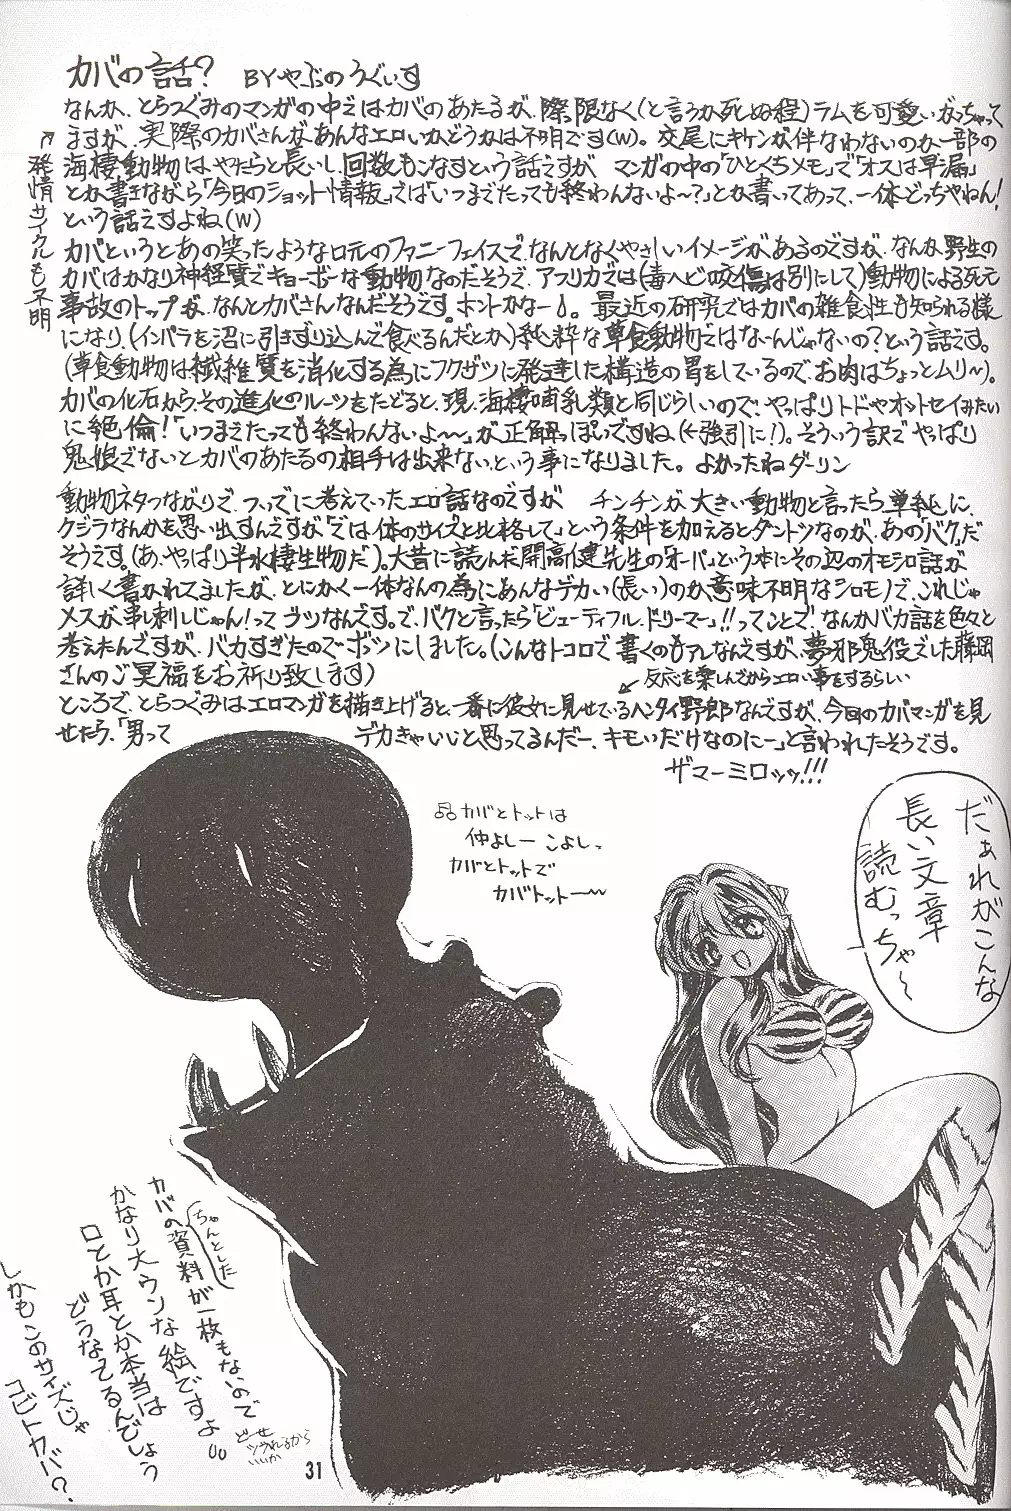 カバの話？ BYやぶのうぐいす
なんか、とらつぐみのマンガの中ではカバのあたるが、際限なく(と言うか死ぬ程)ラムを可愛いがっちゃって
ますが、実際のカバさんが、あんなエロいかどうかは不明です(w)。交尾にキケンが伴なわないのか一部の
海棲動物は、やたらと長いし、回数もこなすという話ですが マンガの中の「ひとくちメモ」で「オスは早漏」
とか書きながら「今日のショット情報」では「いつまでたっても終わんないよ〜？」とか書いてあって、一体どっちやねん！
という話ですよね(w)
↑発情サイクルも不明
カバというとあの笑ったような口元のファニーフェイスで、なんとなくやさしいイメージがあるのですが、なんか野生の
カバはかなり神経質でキョーボーな動物なのだそうで、アフリカでは(毒ヘビ咬傷は別にして)動物による死亡
事故のトップが、なんとカバさんなんだそうです。ホントかなー。最近の研究ではカバの雑食性も知られる様
になり、(インパラを沼に引きずり込んで食べるんだとか)純粋な草食動物ではないんじゃないの？という話です。
(草食動物は繊維質を消化する為にフクザツに発達した構造の胃をしているので、お肉はちょっとムリ〜)。
カバの化石から、その進化のルーツをたどると、現・海棲哺乳類と同じらしいので、やっぱりトドやオットセイみたい
に絶倫！「いつまでたっても終わんないよ〜〜」が正解っぽいですね(←強引に！)。そういう訳でやっぱり
鬼娘でないとカバのあたるの相手は出来ない、という事になりました。よかったねダーリン
動物ネタつながりで、ついでに考えていったエロ話なのですが チンチンが大きい動物と言ったら単純に、
クジラなんかを思い出すんですが「では体のサイズと比格して」という条件を加えるとダントツなのが、あの「バク」だ
そうです。(あ、やっぱり半水棲生物だ)。大昔に読んだ開高健先生の「オーパ」という本にその辺のオモシロ話が
詳しく書かれてましたが、とにかく一体なんの為にあんなデカい(長い)のか意味不明なシロモノで、これじゃ
メスが串刺しじゃん！ってブツなんです。で、バクと言ったら「ビューティフル・ドリーマー」!!ってことで、なんかバカ話を色々と
考えたんですが、バカすぎたのでボツにしました。(こんなトコロで書くのもアレなんですが、夢邪鬼役でした藤岡
さんのご冥福をお祈り致します)
反応を楽しんでからエロい事をするらしい
ところで、とらつぐみはエロマンガを描き上げると、一番に彼女に見せているヘンタイ野郎なんですが、今回のカバマンガを見
せたら、「男って デカきゃいいと思ってるんだー、キモいだけなのにー」と言われたそうです。
ザマーミロッッ!!!
だぁれがこんな
長い文章
読むっちゃ〜
♫カバとトットは
仲よしー こよしー
カバとトットで
カバトットー〜
カバの(ちゃんとした)資料が一枚もないので
かなり大ウソな絵ですよ。
口とか耳とか本当は
どうなってるんでしょう
しかもこのサイズじゃ
コビトカバ？
どーせ
いいか
31